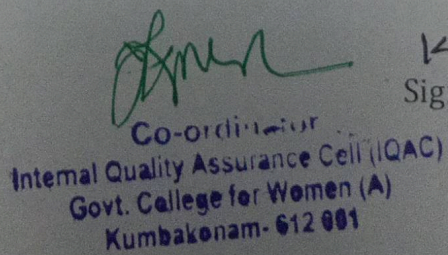 Sig
Co-ordinator
Internal Quality Assurance Cell (IQAC)
Govt. College for Women (A)
Kumbakonam- 612 001